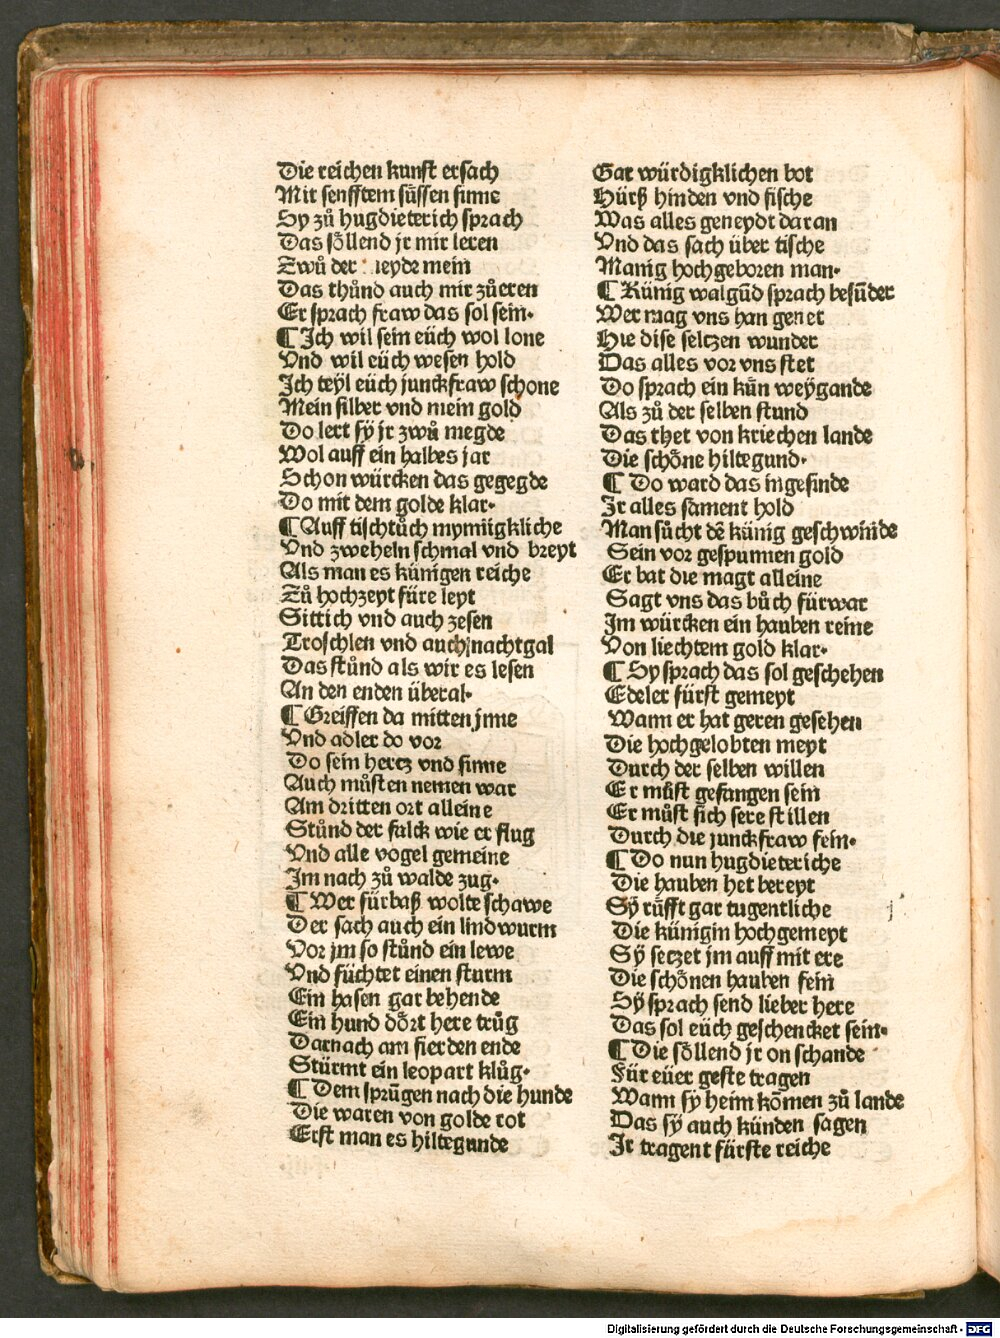 Die reichen kunst ersach
Mit senfftem süssen sinne
Sy zů hugdieterich sprach
Das söllend jr mir leren
Zwů der meyde mein
Das thůnd auch mir zů eren
Er sprach fraw das sol sein.
¶ Ich wil sein eüch wol lone
Vnd wil eüch wesen hold
Ich teyl eüch junckfraw schone
Mein silber vnd mein gold
Do lert sy jr zwů megde
Wol auff ein halbes jar
Schon würcken das gegegde
Do mit dem golde klar.
¶ Auff tischtůch mymigkliche
Vnd zweheln schmal vnd breyt
Als man es künigen reiche
Zů hochzeyt füre leyt
Sittich vnd auch zesen
Troschlen vnd auch nachtgal
Das stůnd als wir es lesen
An den enden überal.
¶ Greiffen da mitten jnne
Vnd adler do vor
Do sein hertz vnd sinne
Auch můsten nemen war
Am dritten ort alleine
Stůnd der falck wie er flug
Vnd alle vogel gemeine
Im nach zů walde zug.
¶ Wer fürbaß wolte schawe
Der sach auch ein lindwurm
Vor jm so stůnd ein lewe
Vnd füchtet einen sturm
Ein hasen gar behende
Ein hund dört here trůg
Darnach am fierden ende
Stürmt ein leopart klůg.
¶ Dem sprūgen nach die hunde
Die waren von golde rot
Erst man es hiltegunde
Gar würdigklichen bot
Hürß hinden vnd fische
Was alles geneydt daran
Vnd das sach über tische
Manig hochgeboren man.
¶ Künig walgūd sprach besūder
Wer mag vns han genet
Hie dise seltzen wunder
Das alles vor vns stet
Do sprach ein kün weygande
Als zů der selben stund
Das thet von kriechen lande
Die schöne hiltegund.
¶ Do ward das ingesinde
Ir alles sament hold
Man sůcht dē künig geschwinde
Sein vor gespunnen gold
Er bat die magt alleine
Sagt vns das bůch fürwar
Im würcken ein hauben reine
Von liechtem gold klar.
¶ Sy sprach das sol geschehen
Edeler fürst gemeyt
Wann er hat geren gesehen
Die hochgelobten meyt
Durch der selben willen
Er můst gefangen sein
Er můst sich sere stillen
Durch die junckfraw fein.
¶ Do nun hugdieteriche
Die hauben het bereyt
Sy růfft gar tugentliche
Die künigin hochgemeyt
Sy setzet jm auff mit ere
Die schönen hauben fein
Sy sprach send lieber here
Das sol eüch geschencket sein.
¶ Die söllend jr on schande
Für eüer geste tragen
Wann sy heim kōmen zů lande
Das sy auch künden sagen
Ir tragent fürste reiche
Digitalisierung gefördert durch die Deutsche Forschungsgemeinschaft - DFG